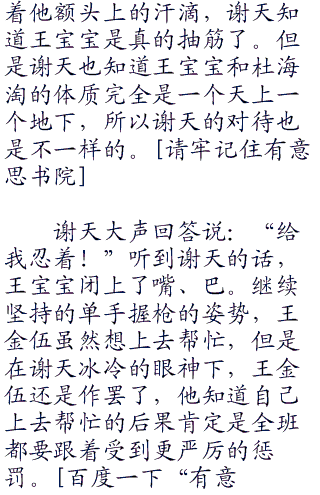 着他额头上的汗滴，谢天知
道王宝宝是真的抽筋了。但
是谢天也知道王宝宝和杜海
淘的体质完全是一个天上一
个地下，所以谢天的对待也
是不一样的。[请牢记住有意
思书院]
谢天大声回答说：“给
我忍着！”听到谢天的话，
王宝宝闭上了嘴、巴。继续
坚持的单手握枪的姿势，王
金伍虽然想上去帮忙，但是
在谢天冰冷的眼神下，王金
伍还是作罢了，他知道自己
上去帮忙的后果肯定是全班
都要跟着受到更严厉的惩
罚。[百度一下“有意